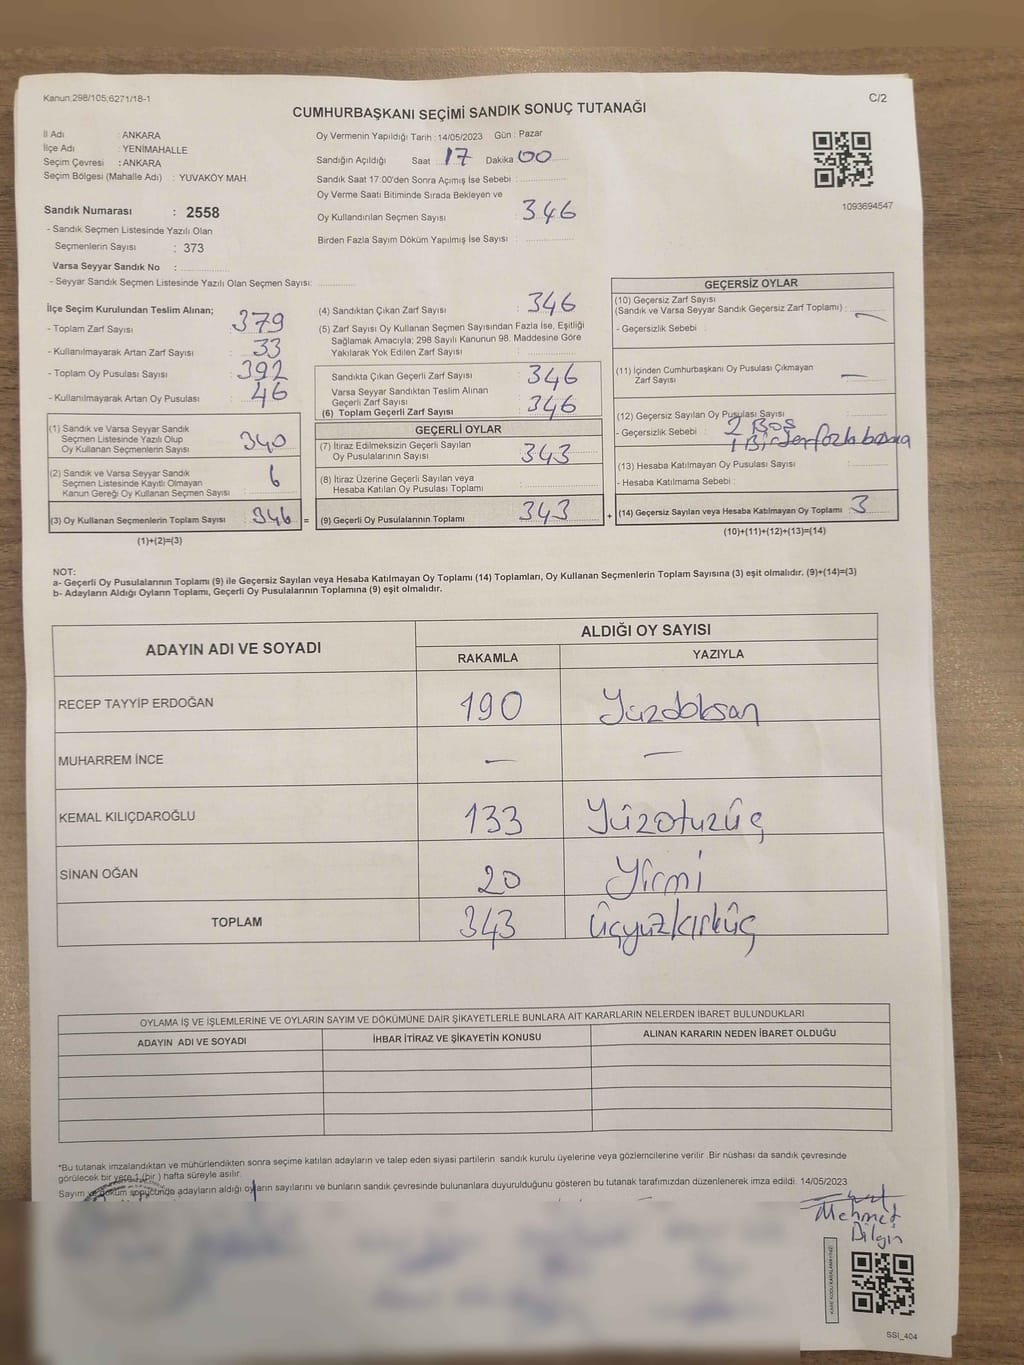 Kanun:298/105;6271/18-1
C/2
CUMHURBAŞKANI SEÇİMİ SANDIK SONUÇ TUTANAĞI
İl Adı : ANKARA
İlçe Adı : YENİMAHALLE
Seçim Çevresi : ANKARA
Seçim Bölgesi (Mahalle Adı) : YUVAKÖY MAH.
Sandık Numarası : 2558
- Sandık Seçmen Listesinde Yazılı Olan
Seçmenlerin Sayısı : 373
Varsa Seyyar Sandık No :
- Seyyar Sandık Seçmen Listesinde Yazılı Olan Seçmen Sayısı:
Oy Vermenin Yapıldığı Tarih : 14/05/2023 Gün : Pazar
Sandığın Açıldığı Saat 17 Dakika 00
Sandık Saat 17:00'den Sonra Açımış İse Sebebi :
Oy Verme Saati Bitiminde Sırada Bekleyen ve
Oy Kullandırılan Seçmen Sayısı : 346
Birden Fazla Sayım Döküm Yapılmış İse Sayısı :
1093694547
İlçe Seçim Kurulundan Teslim Alınan;
- Toplam Zarf Sayısı : 379
- Kullanılmayarak Artan Zarf Sayısı : 33
- Toplam Oy Pusulası Sayısı : 392
- Kullanılmayarak Artan Oy Pusulası : 46
(1) Sandık ve Varsa Seyyar Sandık
Seçmen Listesinde Yazılı Olup
Oy Kullanan Seçmenlerin Sayısı : 340
(2) Sandık ve Varsa Seyyar Sandık
Seçmen Listesinde Kayıtlı Olmayan
Kanun Gereği Oy Kullanan Seçmen Sayısı : 6
(3) Oy Kullanan Seçmenlerin Toplam Sayısı : 346 =
(1)+(2)=(3)
(4) Sandıktan Çıkan Zarf Sayısı : 346
(5) Zarf Sayısı Oy Kullanan Seçmen Sayısından Fazla İse, Eşitliği
Sağlamak Amacıyla; 298 Sayılı Kanunun 98. Maddesine Göre
Yakılarak Yok Edilen Zarf Sayısı :
Sandıkta Çıkan Geçerli Zarf Sayısı : 346
Varsa Seyyar Sandıktan Teslim Alınan
Geçerli Zarf Sayısı
(6) Toplam Geçerli Zarf Sayısı : 346
GEÇERLİ OYLAR
(7) İtiraz Edilmeksizin Geçerli Sayılan
Oy Pusulalarının Sayısı : 343
(8) İtiraz Üzerine Geçerli Sayılan veya
Hesaba Katılan Oy Pusulası Toplamı :
(9) Geçerli Oy Pusulalarının Toplamı : 343 +
GEÇERSİZ OYLAR
(10) Geçersiz Zarf Sayısı
(Sandık ve Varsa Seyyar Sandık Geçersiz Zarf Toplamı) : —
- Geçersizlik Sebebi :
(11) İçinden Cumhurbaşkanı Oy Pusulası Çıkmayan
Zarf Sayısı —
(12) Geçersiz Sayılan Oy Pusulası Sayısı :
- Geçersizlik Sebebi : 2 Boş
1 Birden fazla basma
(13) Hesaba Katılmayan Oy Pusulası Sayısı :
- Hesaba Katılmama Sebebi :
(14) Geçersiz Sayılan veya Hesaba Katılmayan Oy Toplamı : 3
(10)+(11)+(12)+(13)=(14)
NOT:
a- Geçerli Oy Pusulalarının Toplamı (9) ile Geçersiz Sayılan veya Hesaba Katılmayan Oy Toplamı (14) Toplamları, Oy Kullanan Seçmenlerin Toplam Sayısına (3) eşit olmalıdır. (9)+(14)=(3)
b- Adayların Aldığı Oyların Toplamı, Geçerli Oy Pusulalarının Toplamına (9) eşit olmalıdır.
ADAYIN ADI VE SOYADI ALDIĞI OY SAYISI
RAKAMLA YAZIYLA
RECEP TAYYİP ERDOĞAN 190 Yüzdoksan
MUHARREM İNCE — —
KEMAL KILIÇDAROĞLU 133 Yüzotuzüç
SİNAN OĞAN 20 Yirmi
TOPLAM 343 üçyüzkırküç
OYLAMA İŞ VE İŞLEMLERİNE VE OYLARIN SAYIM VE DÖKÜMÜNE DAİR ŞİKAYETLERLE BUNLARA AİT KARARLARIN NELERDEN İBARET BULUNDUKLARI
ADAYIN ADI VE SOYADI İHBAR İTİRAZ VE ŞİKAYETİN KONUSU ALINAN KARARIN NEDEN İBARET OLDUĞU
*Bu tutanak imzalandıktan ve mühürlendikten sonra seçime katılan adayların ve talep eden siyasi partilerin sandık kurulu üyelerine veya gözlemcilerine verilir. Bir nüshası da sandık çevresinde
görülecek bir yere 1 (bir ) hafta süreyle asılır.
Sayım ve döküm sonucunda adayların aldığı oyların sayılarını ve bunların sandık çevresinde bulunanlara duyurulduğunu gösteren bu tutanak tarafımızdan düzenlenerek imza edildi. 14/05/2023
Mehmet
Dilgin
SSI_404